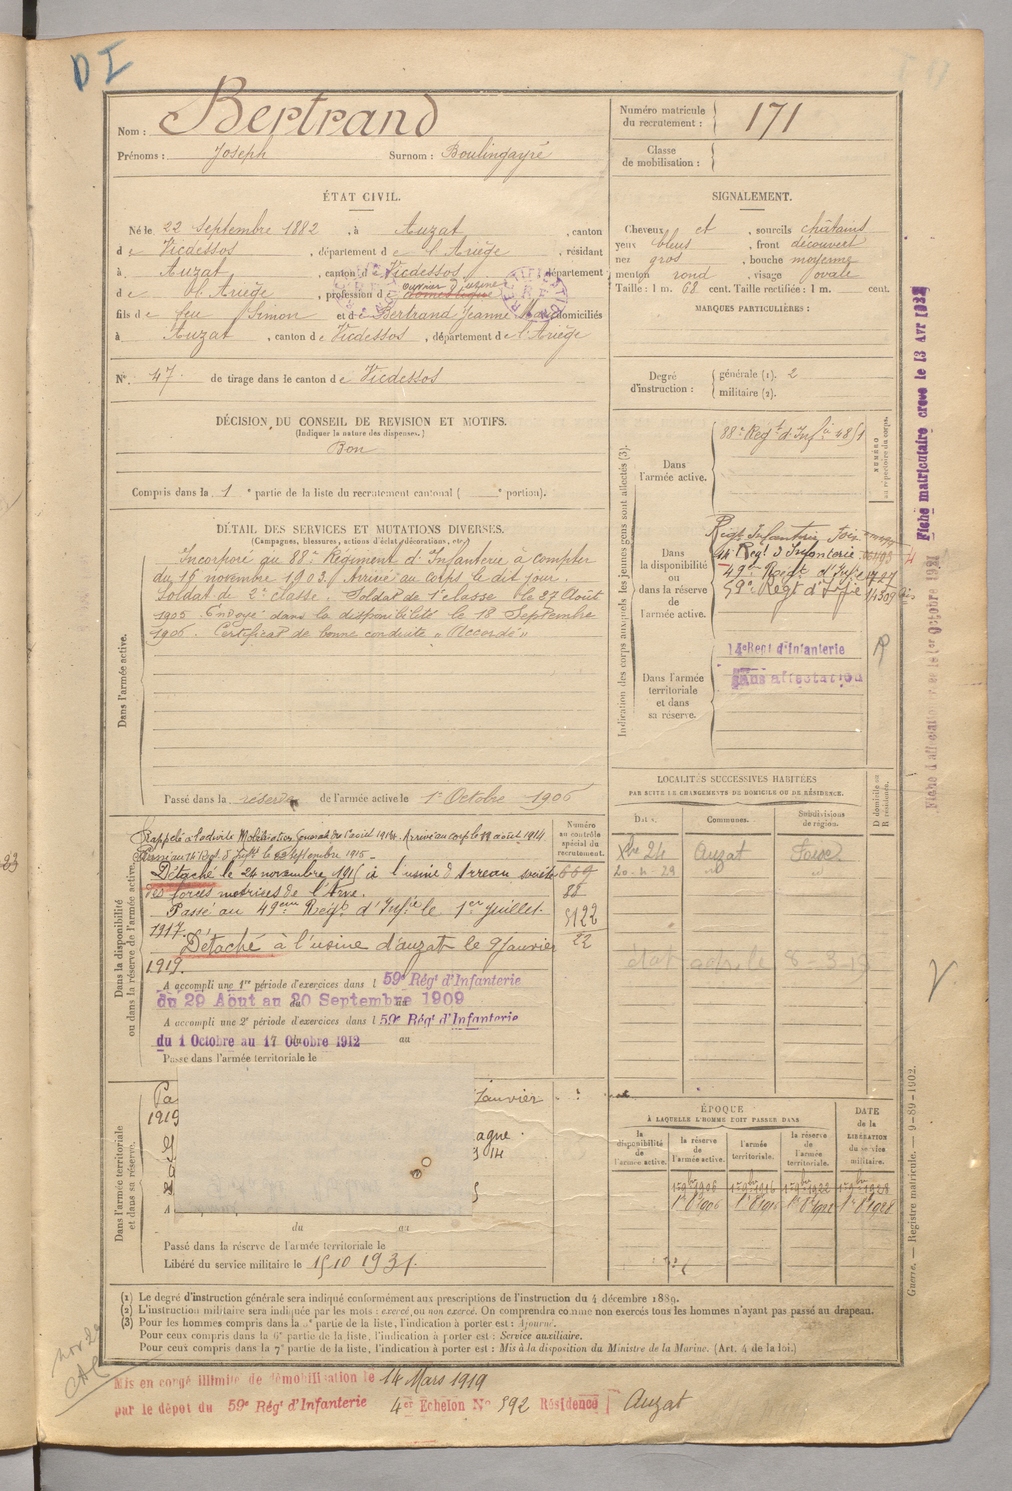 D I
Nom : Bertrand
Prénoms : Joseph Surnom : Boulingayré
Numéro matricule du recrutement : 171
Classe de mobilisation :
ÉTAT CIVIL.
Né le 22 Septembre 1882, à Auzat, canton
de Vicdessos, département de l'Ariège, résidant
à Auzat, canton de Vicdessos, département
d e l'Ariège, profession de domestique ouvrier d'usine
fils de feu Simon et de Bertrand Jeanne domiciliés
à Auzat, canton de Vicdessos, département de l'Ariège
N° 47 de tirage dans le canton de Vicdessos
SIGNALEMENT.
Cheveux et, sourcils châtains
yeux bleus, front découvert
nez gros, bouche moyenne
menton rond, visage ovale
Taille : 1 m. 68 cent. Taille rectifiée : 1 m. cent.
MARQUES PARTICULIÈRES :
Degré d'instruction : générale (1). 2
militaire (2).
DÉCISION DU CONSEIL DE REVISION ET MOTIFS.
(Indiquer la nature des dispenses.)
Bon
Compris dans la 1e partie de la liste du recrutement cantonal ( e portion).
DÉTAIL DES SERVICES ET MUTATIONS DIVERSES.
(Campagnes, blessures, actions d'éclat, décorations, etc.)
Dans l'armée active.
Incorporé au 88e Régiment d'Infanterie à compter
du 15 novembre 1903. Arrivé au corps le dit jour.
Soldat de 2e classe. Soldat de 1e classe le 27 Août
1905. Envoyé dans la disponibilité le 18 Septembre
1906. Certificat de bonne conduite "Accordé"
Passé dans la réserve de l'armée active le 1er Octobre 1906
Indication des corps auxquels les jeunes gens sont affectés (3).
NUMÉRO au répertoire du corps.
Dans l'armée active.
88e Regt d'Infie 4851
Dans la disponibilité ou dans la réserve de l'armée active.
Regt Infanterie Foix
14e Regt d'Infanterie
49e Regt d'Infie 1727
59e Regt d'Infie 14309
Dans l'armée territoriale et dans sa réserve.
14e Regt d'Infanterie
Sans affectation
Fiche matriculaire créée le 13 Avr 1932
Dans la disponibilité ou dans la réserve de l'armée active.
Rappelé à l'activité Mobilisation Générale du 1er août 1914. Arrivé au corps le 12 août 1914
Passé au 14e Regt d'Inftie le Septembre 1915
Détaché le 24 novembre 1915 à l'usine d'Arreau société
des forces motrices de l'Arve.
Passé au 49eme Regt d'Infie le 1er Juillet
1917.
Détaché à l'usine d'auzat le 9 Janvier
1919.
A accompli une 1re période d'exercices dans l 59e Régt d'Infanterie
du 29 Aout au 20 Septembre 1909
A accompli une 2e période d'exercices dans l 59e Régt d'Infanterie
du 1 Octobre au 17 Octobre 1912 au
Passé dans l'armée territoriale le
Numéro au contrôle spécial du recrutement.
669
88
5122
22
LOCALITÉS SUCCESSIVES HABITÉES
PAR SUITE DE CHANGEMENTS DE DOMICILE OU DE RÉSIDENCE.
Dates. Communes. Subdivisions de région. D domicile ou R résidence.
Xbre 24 Auzat Foix
20-4-29 " "
Dans l'armée territoriale et dans sa réserve.
Pa Janvier
1919
agne.
14
du au
Passé dans la réserve de l'armée territoriale le
Libéré du service militaire le 15 10 1931.
ÉPOQUE
À LAQUELLE L'HOMME DOIT PASSER DANS
la disponibilité de l'armée active. la réserve de l'armée active. l'armée territoriale. la réserve de l'armée territoriale. DATE de la LIBÉRATION du service militaire.
1er 9bre 1906 1er 9bre 1916 1er 9bre 1922 1er 9bre 1928
1er 8bre 1906 1er 8bre 1916 1er 8bre 1922 1er 8bre 1928
Guerre. — Registre matricule. — 9-89-1902.
(1) Le degré d'instruction générale sera indiqué conformément aux prescriptions de l'instruction du 4 décembre 1889.
(2) L'instruction militaire sera indiquée par les mots : exercé, ou non exercé. On comprendra comme non exercés tous les hommes n'ayant pas passé au drapeau.
(3) Pour les hommes compris dans la e partie de la liste, l'indication à porter est : Ajourné.
Pour ceux compris dans la 6e partie de la liste, l'indication à porter est : Service auxiliaire.
Pour ceux compris dans la 7e partie de la liste, l'indication à porter est : Mis à la disposition du Ministre de la Marine. (Art. 4 de la loi.)
Mis en congé illimité de démobilisation le 14 Mars 1919
par le dépot du 59e Régt d'Infanterie 4er Echelon No 592 Résidence Auzat